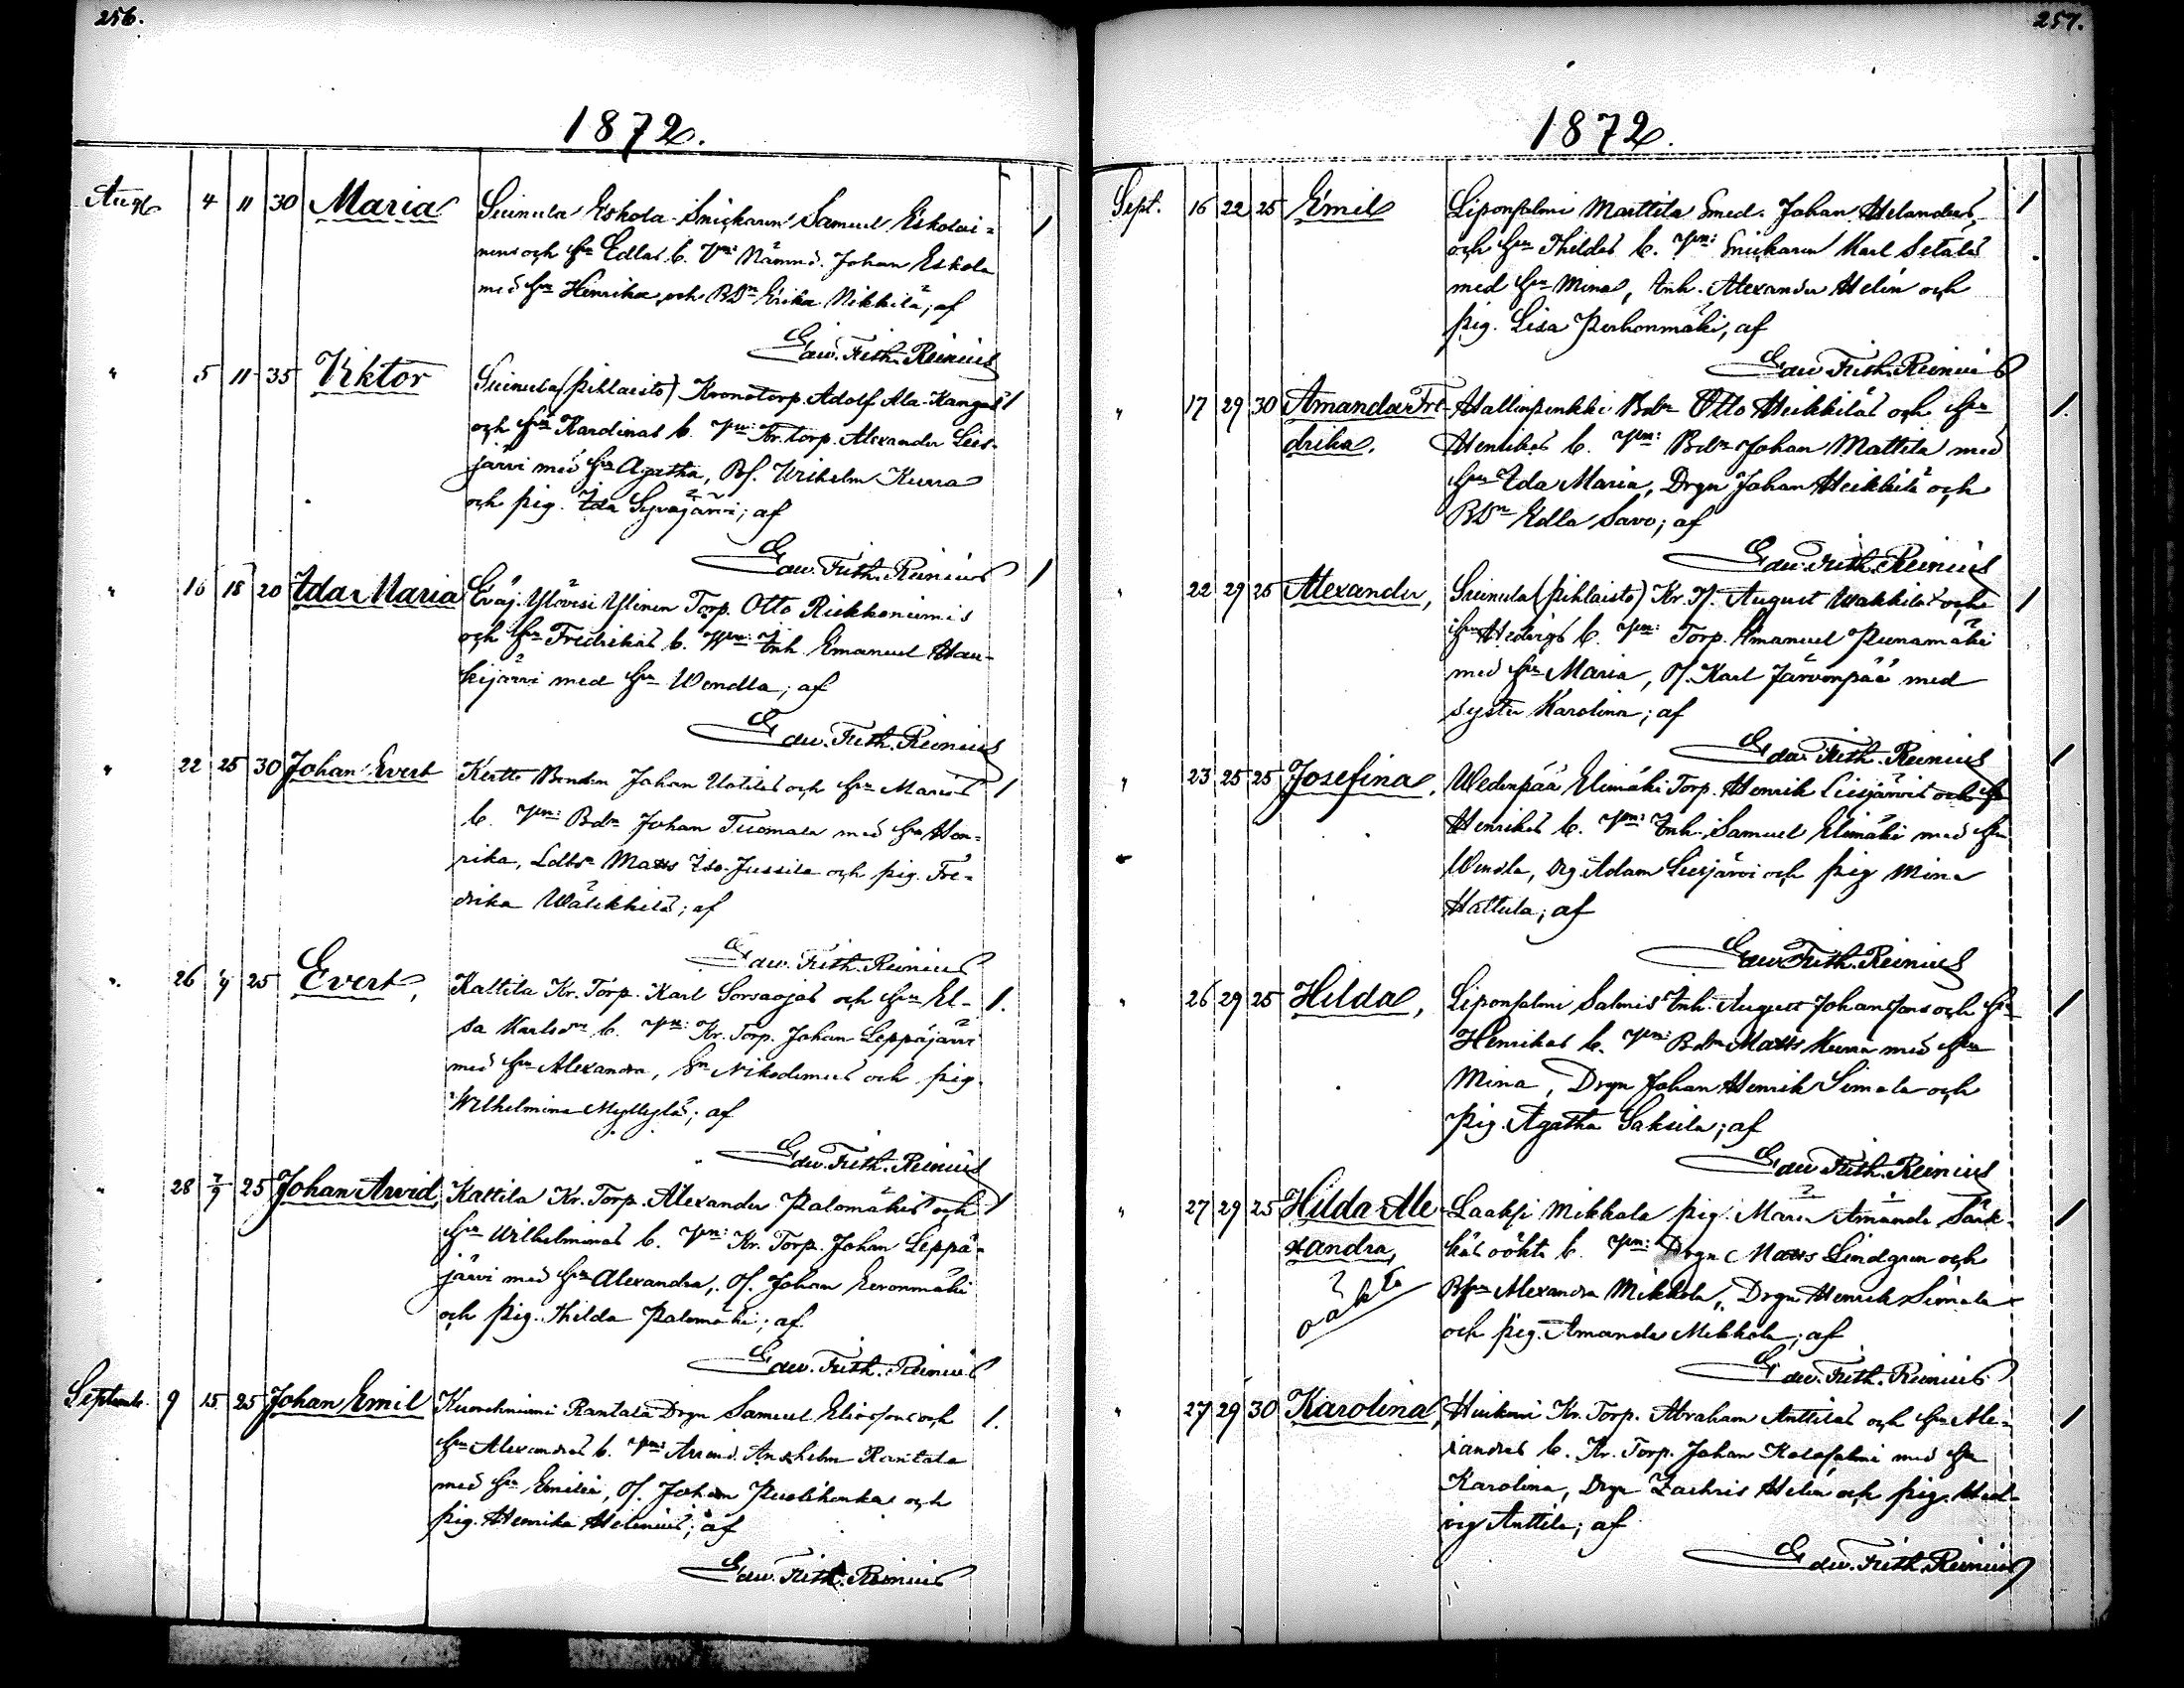 256.
1872.
Aug. 4 11 30 Maria Suinula Eskola Snickaren Samuel Eskolai-
nens och hu Edlas b. Vn: Nämnd. Johan Eskola
med hu Henrika och BDn Erika Nikkilä; af
Edw. Frith. Reinius
" 5 11 35 Viktor Suinula (pihlaisto) Kronotorp. Adolf Ala-Kangas
och hu Karolinas b. Vn: Kr. torp. Alexander Lies-
järvi med hu Agatha, Bs. Wilhelm Kurra
och pig. Ida Syväjärvi; af
Edw. Frith. Reinius
" 16 18 20 Ida Maria Eväj. Ylövesi Ylinen Torp. Otto Riekkoniemis
och hu Fredrikas b. Vn: Inh. Emanuel Hau-
kijärvi med hu Wendla; af
Edw. Frith. Reinius
" 22 25 30 Johan Evert Kertte Bonden Johan Uotilas och hu Marias
b. Vn: Bdn Johan Tuomala med hu Hen-
rika, Ldbn Matts Iso-Jussila och pig. Fre-
drika Wälikkilä; af
Edw. Frith. Reinius
" 26 25 Evert, Kattila Kr. Torp. Karl Sorsaojas och hu El-
sa Karlsdr b. Vn: Kr. Torp. Johan Leppäjärvi
med hu Alexandra, Sn Nikodemus och pig.
Wilhelmina Myllylä; af
Edw. Frith. Reinius
" 28 7/9 25 Johan Arvid Kattila Kr. Torp. Alexander Palomäkis och
hu Wilhelminas b. Vn: Kr. Torp. Johan Leppä-
järvi med hu Alexandra, Os. Johan Eeronmäki
och pig. Hilda Palomäki; af
Edw. Frith. Reinius
Septemb. 9 15 25 Johan Emil Kuorehniemi Rantala Drgn Samuel Eliassons och
hu Alexandras b. Vn: Arrend. Anshelm Rantala
med hu Emilia, Os. Johan Puolihonka och
pig. Henrika Helenius; af
Edw. Frith. Reinius
257.
1872.
Sept. 16 22 25 Emil Liponsalmi Marttila Smed. Johan Helanders,
och hu Thildas b. Vn: Snickaren Karl Setälä
med hu Mina, Inh. Alexander Helin och
pig. Lisa Perhonmäki, af
Edw. Frith. Reinius
" 17 29 30 Amanda Fre- Hallinpenkki Bdn Otto Heikkiläs och hu
drika. Henrikas b. Vn: Bdn Johan Mattila med
hu Ida Maria, Drgn Johan Heikkilä och
BDn Edla Savo; af
Edw. Frith. Reinius
" 22 29 25 Alexander, Suinula (pihlaisto) Kr. T. August Wakkilas och
hu Hedvigs b. Vn: Torp. Emanuel Punamäki
med hu Maria, Os. Karl Järvenpää med
syster Karolina; af
Edw. Frith. Reinius
" 23 25 25 Josefina, Wedenpää Elimäki Torp. Henrik Liesjärvis och hu
Henrikas b. Vn: Inh. Samuel Elimäki med hu
Wendla, Drg Adam Liesjärvi och pig Mina
Hattula; af
Edw. Frith. Reinius
" 26 29 25 Hilda, Liponsalmi Salmis Inh. August Johanssons och hu
Henrikas b. Vn: Bdn Matts Kurra med hu
Mina, Drgn Johan Henrik Simola och
pig. Agatha Saksila; af
Edw. Frith. Reinius
" 27 29 25 Hilda Ale- Laaksi Mikkola pig. Maria Amanda Särk-
xandra, käs oäkta b. Vn: Drgn Matts Lindgren och
oäkta Bhu Alexandra Mikkola, Drgn Henrik Simola
och pig. Amanda Mikkola; af
Edw. Frith. Reinius
" 27 29 30 Karolina, Kr. Torp. Abraham Anttilas och hu Ale-
xandras b. Kr. Torp. Johan Kolasalmi med hu
Karolina, Drgn Zachris Helin och pig. Hed-
vig Anttila; af
Edw. Frith. Reinius